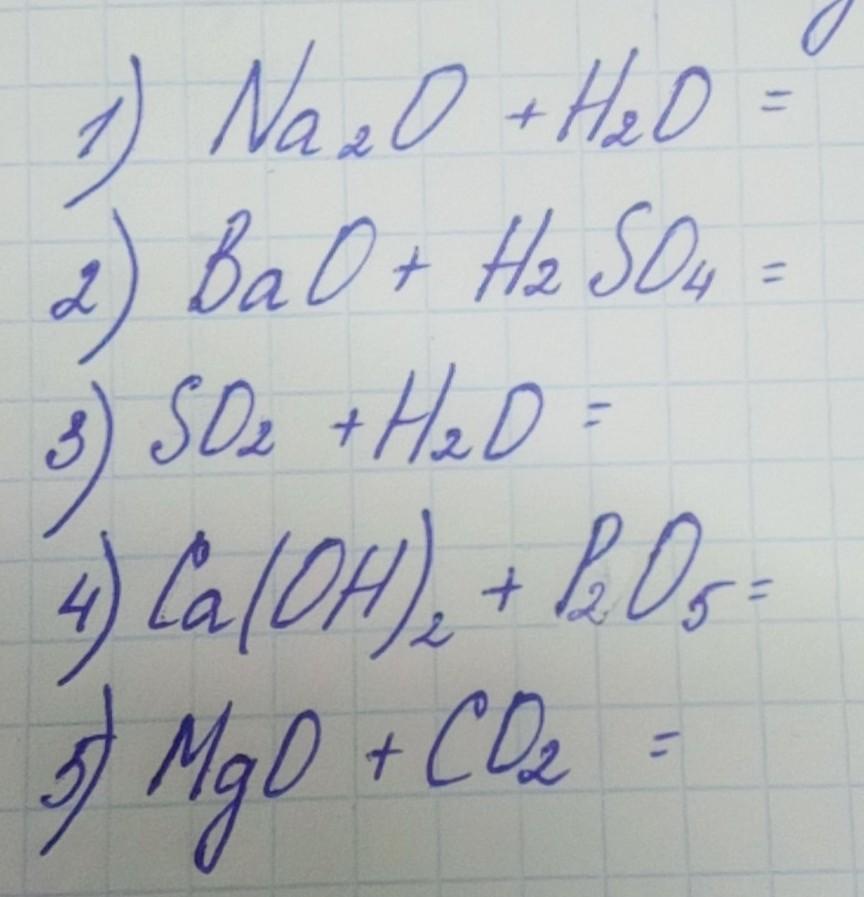 1) Na₂O + H₂O =
2) BaO + H₂SO₄ =
3) SO₂ + H₂O =
4) Ca(OH)₂ + P₂O₅ =
5) MgO + CO₂ =